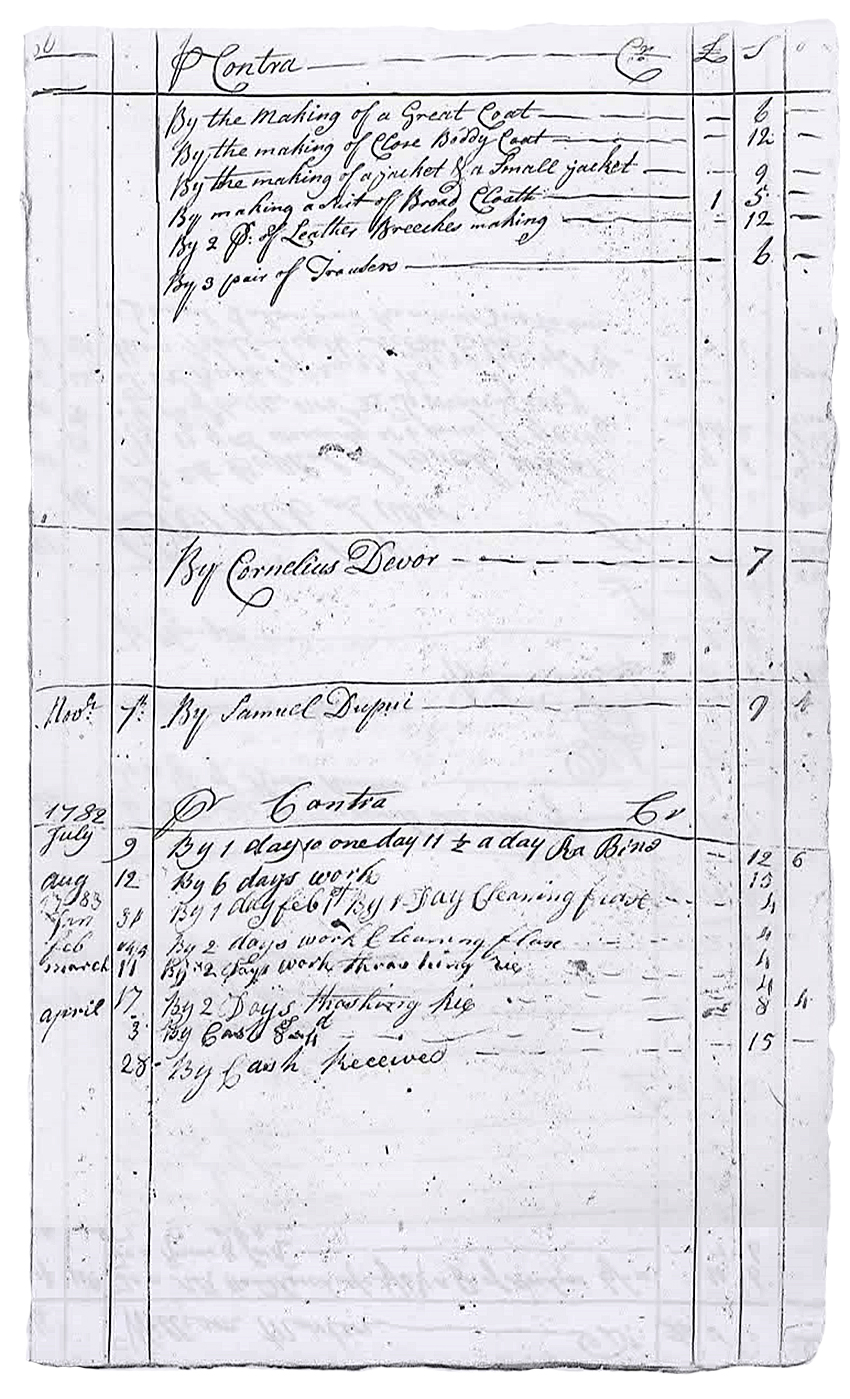 P Contra Cr £ S
By the Making of a Great Coat — 6 —
By the making of Close Boddy Coat — 12 —
By the making of a jacket & a Small jacket — 9 —
By making a Suit of Broad Cloath 1 5 —
By 2 Pr. of Leather Breeches making — 12 —
By 3 pair of Trousers — 6 —
By Cornelius Devor — 7 —
Novr. By Samuel Dupui 9
1782 Pr Contra Cr
July 9 By 1 day to one day 11 ½ a day — 12 6
aug 12 By 6 days work 15
1783
Jan 31 By 1 day feb 1st By 1 Day Cleaning flax — 4
feb By 2 days work Cleaning flax 4
march 11 By 2 days work thrashing rie 4
17 By 2 Days thrashing Rie 4
april 3 By Cash 8 4
28 By Cash Received 15 —